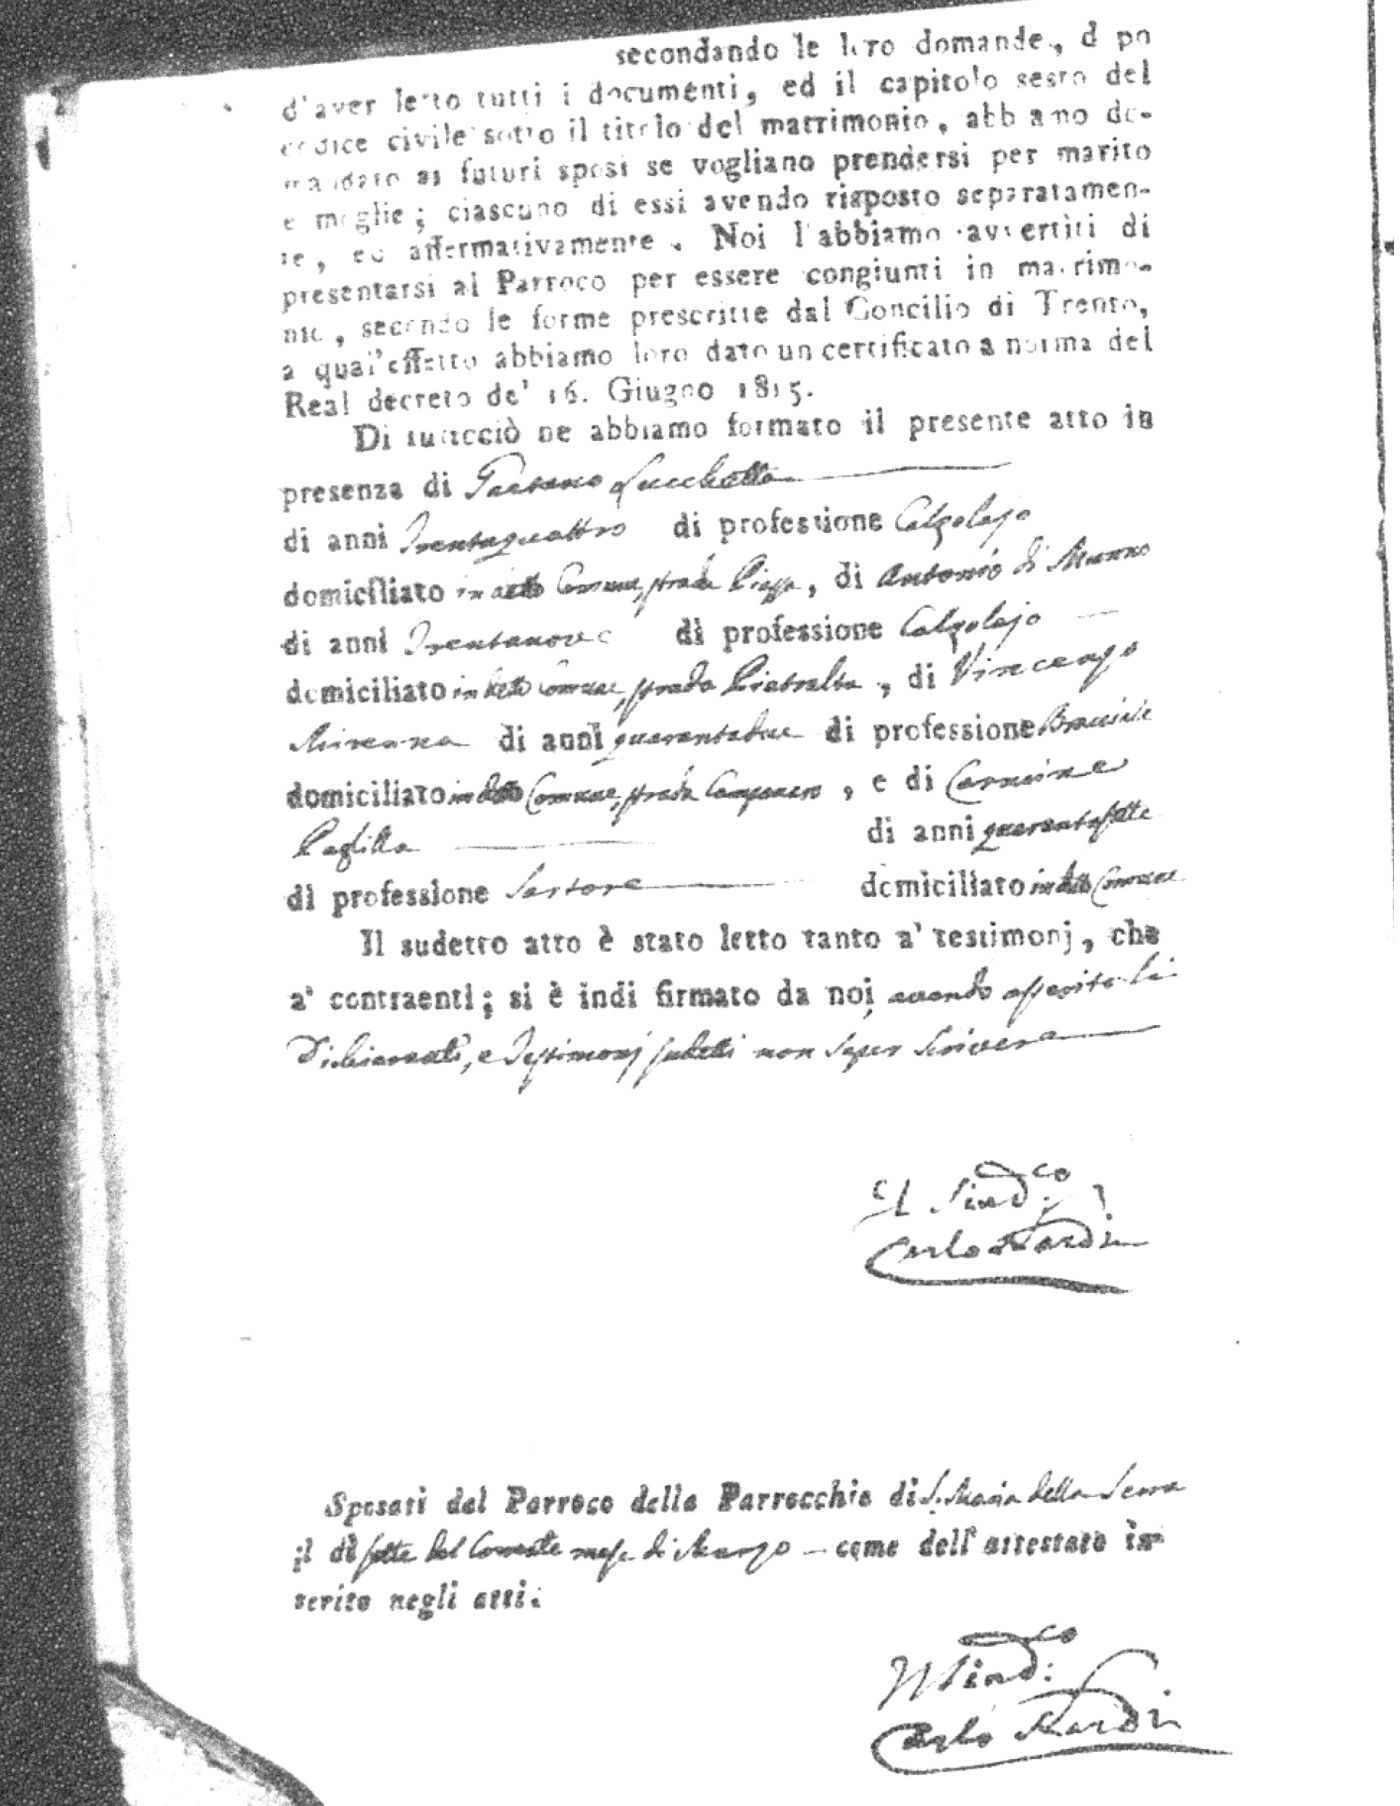 secondando le loro domande, d po
d'aver letto tutti i documenti, ed il capitolo sesto del
codice civile sotto il titolo del matrimonio, abb amo do-
mandato ai futuri sposi se vogliano prendersi per marito
e moglie; ciascuno di essi avendo risposto separatamen-
te, ed affermativamente. Noi l'abbiamo avvertiti di
presentarsi al Parroco per essere congiunti in matrimo-
nio, secondo le forme prescritte dal Concilio di Trento,
a qual'effetto abbiamo loro dato un certificato a norma del
Real decreto de' 16. Giugno 1815.
Di tuttociò ne abbiamo formato il presente atto in
presenza di Gaetano Lucchetta
di anni Trentaquattro di professione Calzolajo
domiciliato in detto Comune, strada Piazza, di Antonio di Munno
di anni Trentanove di professione Calzolajo
domiciliato in detto Comune, strada Pietralta, di Vincenzo
di anni quarantadue di professione Bracciale
domiciliato in detto Comune, strada, e di Carmine
Paglilla di anni quarantasette
di professione Sartore domiciliato in detto Comune
Il sudetto atto è stato letto tanto a' testimonj, che
a' contraenti; si è indi firmato da noi, avendo asserito li
Dichiaranti, e Testimonj sudetti non saper scrivere
Il Sind.co
Carlo Nardi
Sposati dal Parroco della Parrocchia di S. Maria della Serra
il dì sette del Corrente mese di Marzo - come dell'attestato in-
serito negli atti.
Il Sind.co
Carlo Nardi